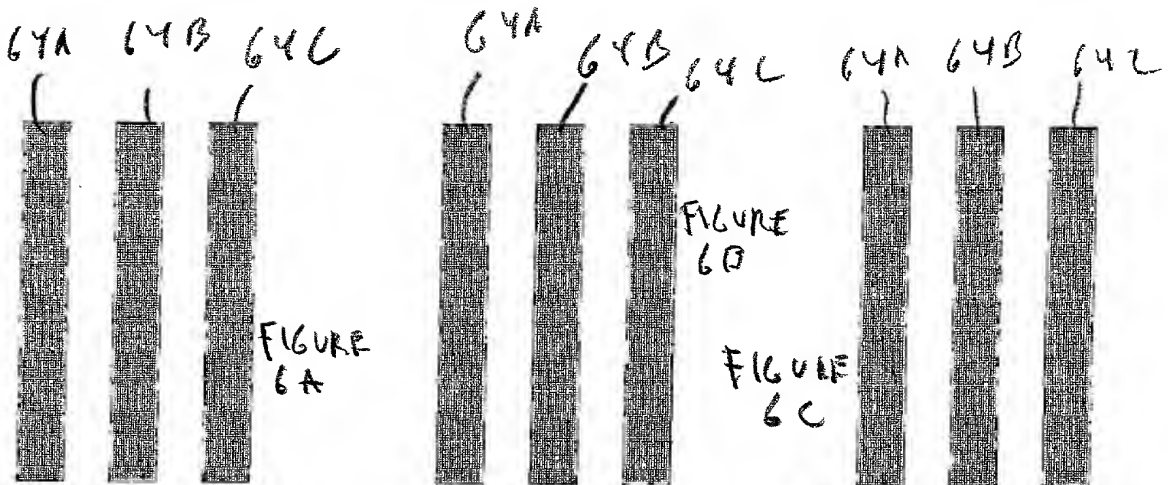 64A 64B 64C 64A 64B 64C 64A 64B 64C
FIGURE
6B
FIGURE
6A
FIGURE
6C